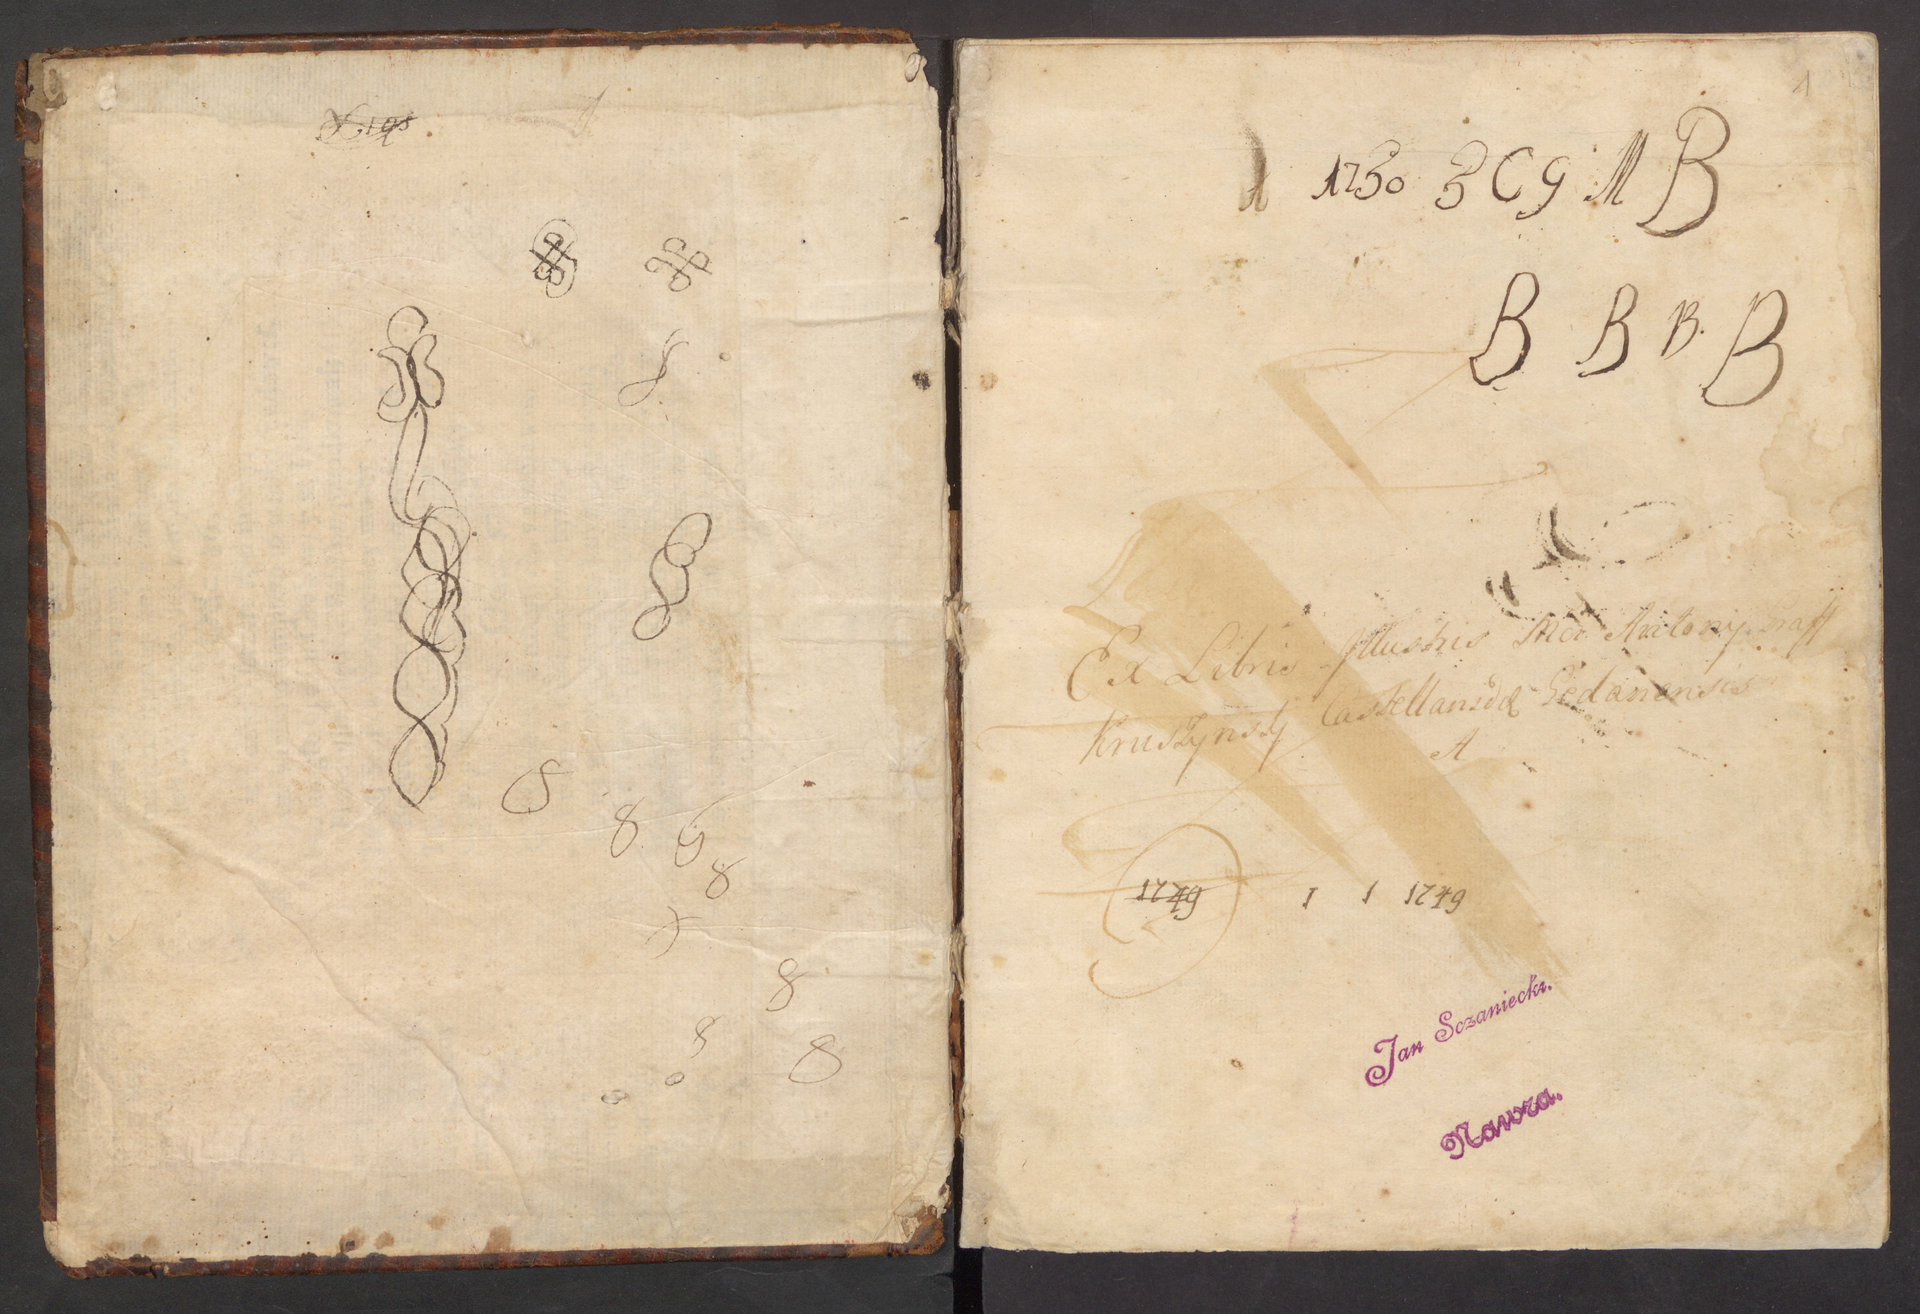 8
8
8
8
8
8
8
1
1 1730 3 C G M B
B B B. B
Ex Libris Illustris Antonij
Kruszynsky Castellanidae Gedanensis
A
1749 1 1 1749
Jan Sczaniecki.
Nawra.